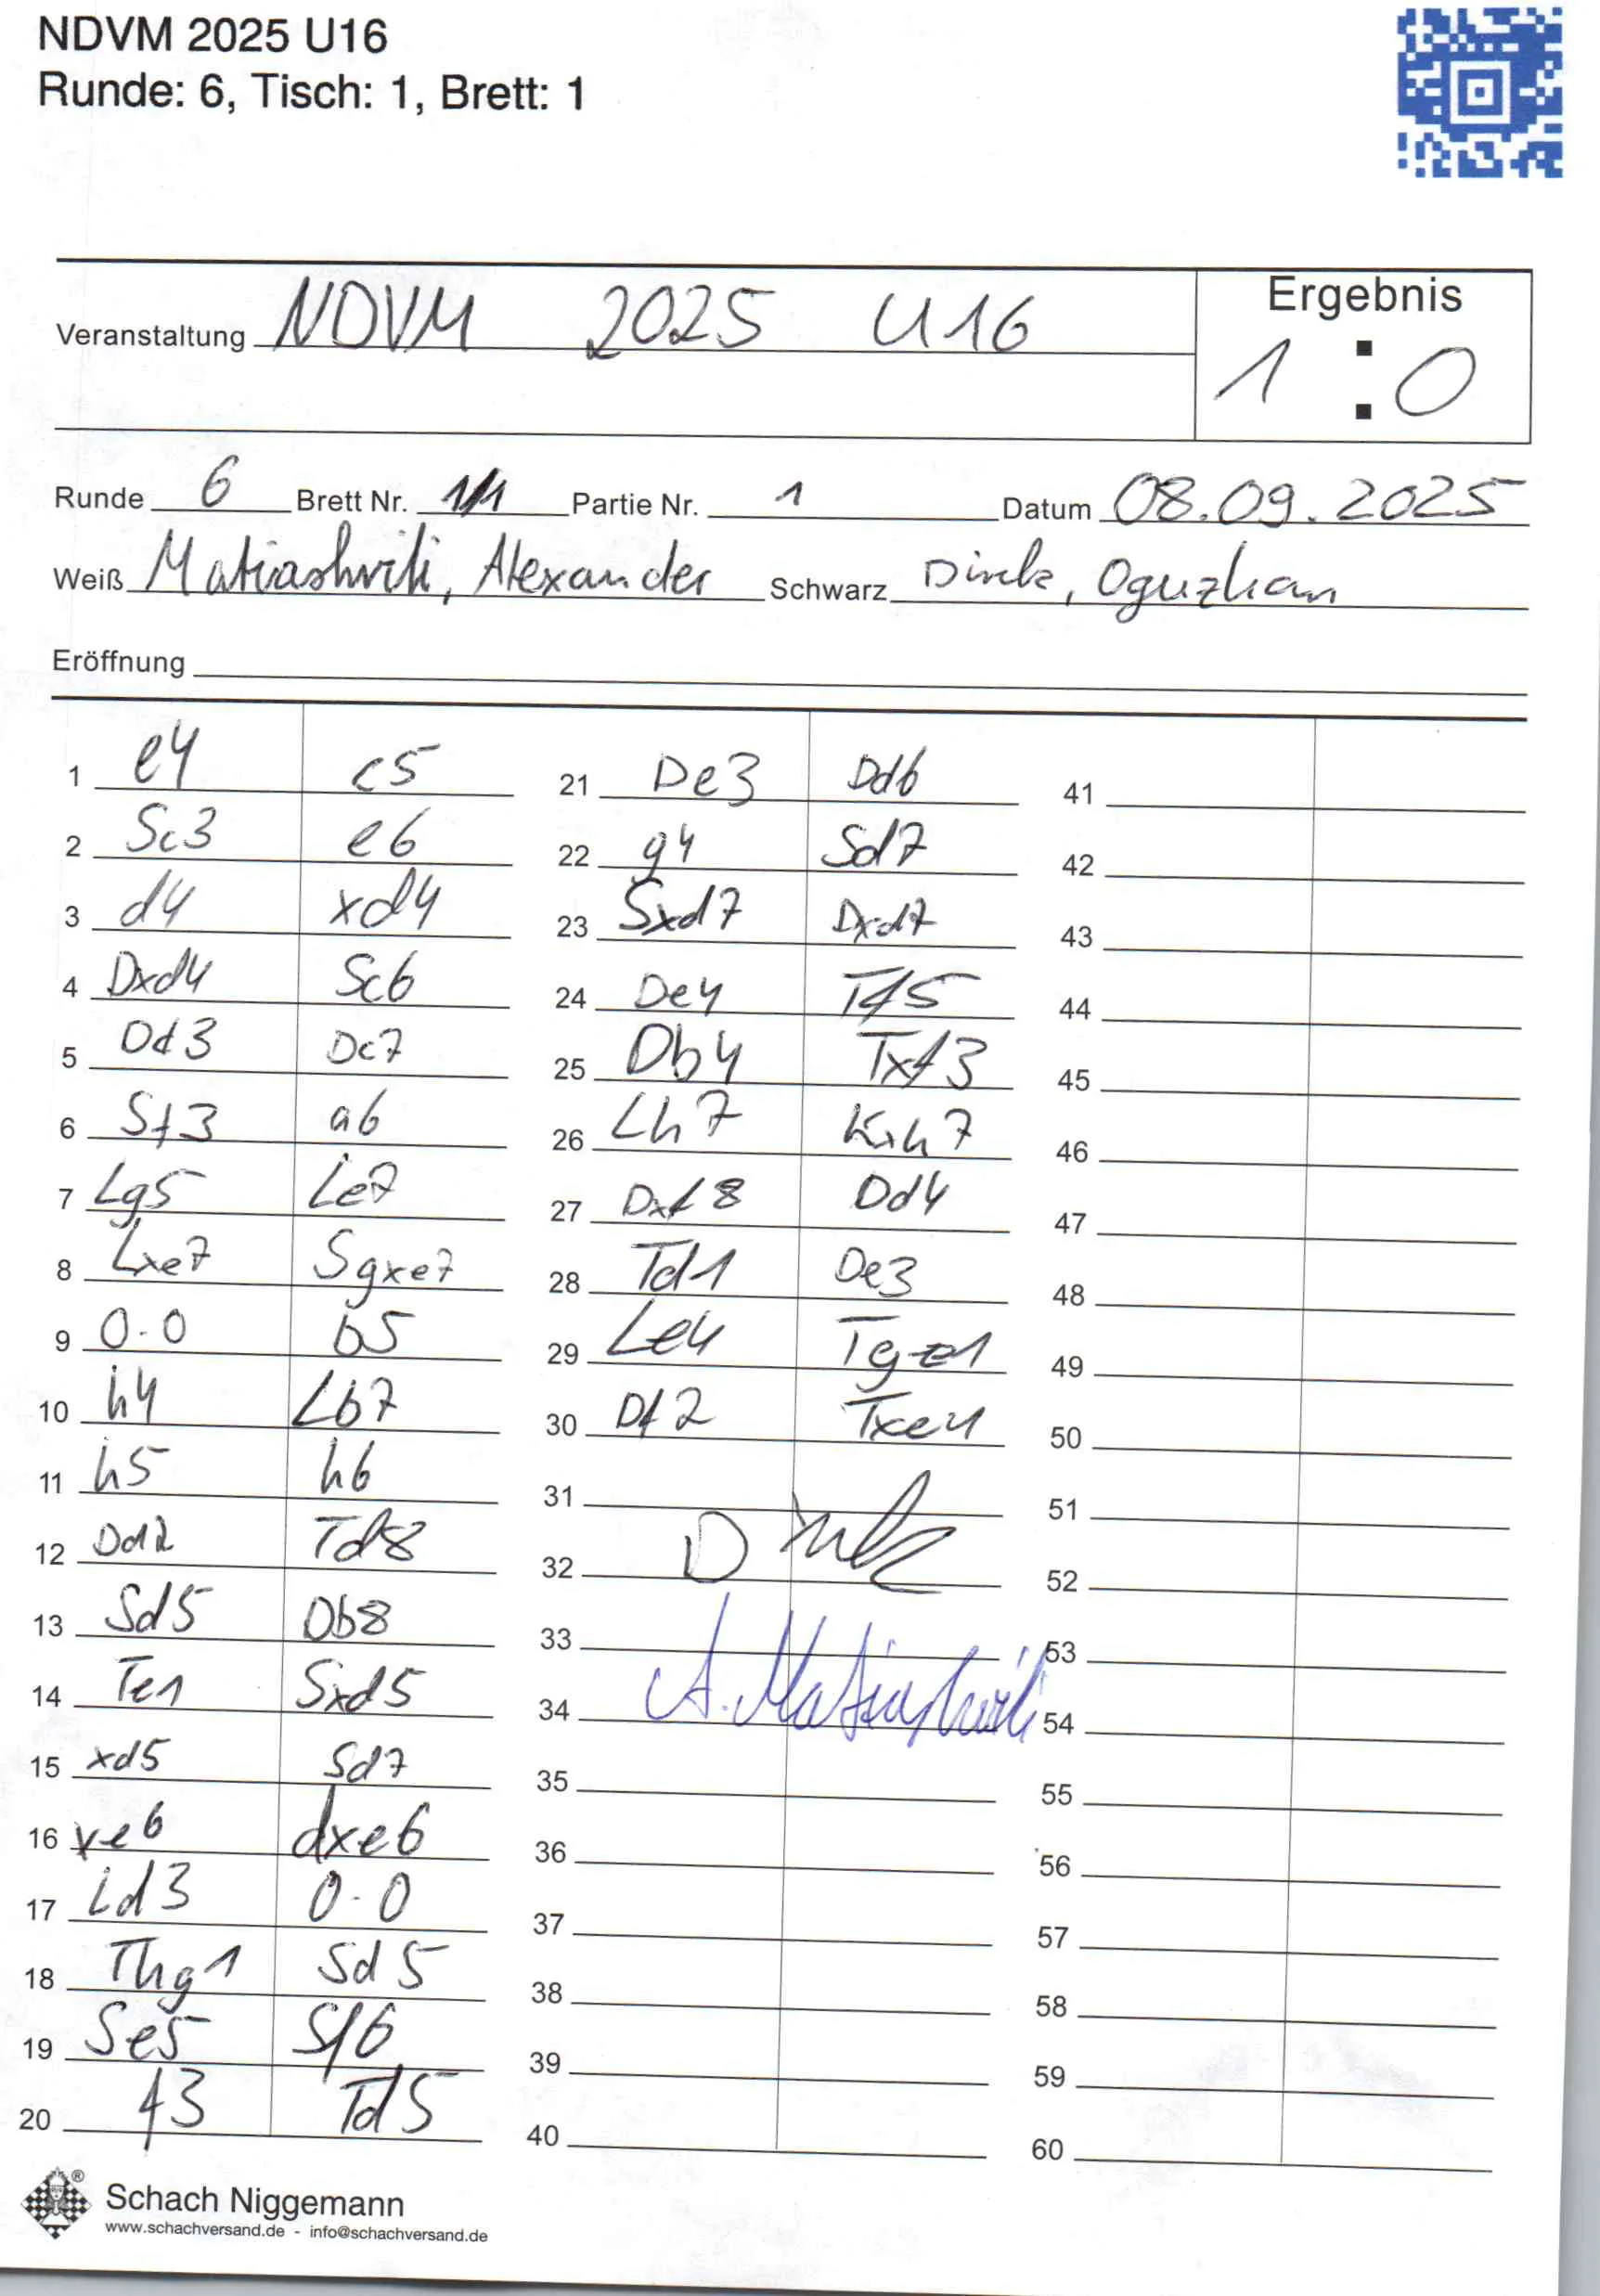 NDVM 2025 U16
Runde: 6, Tisch: 1, Brett: 1
Veranstaltung NDVM 2025 U16
Ergebnis
1 : 0
Runde 6 Brett Nr. 1/1 Partie Nr. 1 Datum 08.09.2025
Weiß Matiashvili, Alexander Schwarz Dirik, Oguzhan
Eröffnung
1 e4 c5
2 Sc3 e6
3 d4 xd4
4 Dxd4 Sc6
5 Dd3 Dc7
6 Sf3 a6
7 Lg5 Le7
8 Lxe7 Sgxe7
9 0-0 b5
10 h4 Lb7
11 h5 h6
12 Dd2 Td8
13 Sd5 Db8
14 Te1 Sxd5
15 xd5 Sd7
16 xe6 dxe6
17 Ld3 0-0
18 Thg1 Sd5
19 Se5 Sf6
20 f3 Td5
21 De3 Dd6
22 g4 Sd7
23 Sxd7 Dxd7
24 De4 Tf5
25 Db4 Txf3
26 Lh7 Kxh7
27 Dxf8 Dd4
28 Td1 De3
29 Le4 Tge1
30 Df2 Txe4
31
32
33
34 A. Matiashvili
35
36
37
38
39
40
41
42
43
44
45
46
47
48
49
50
51
52
53
54
55
56
57
58
59
60
Schach Niggemann
www.schachversand.de - info@schachversand.de